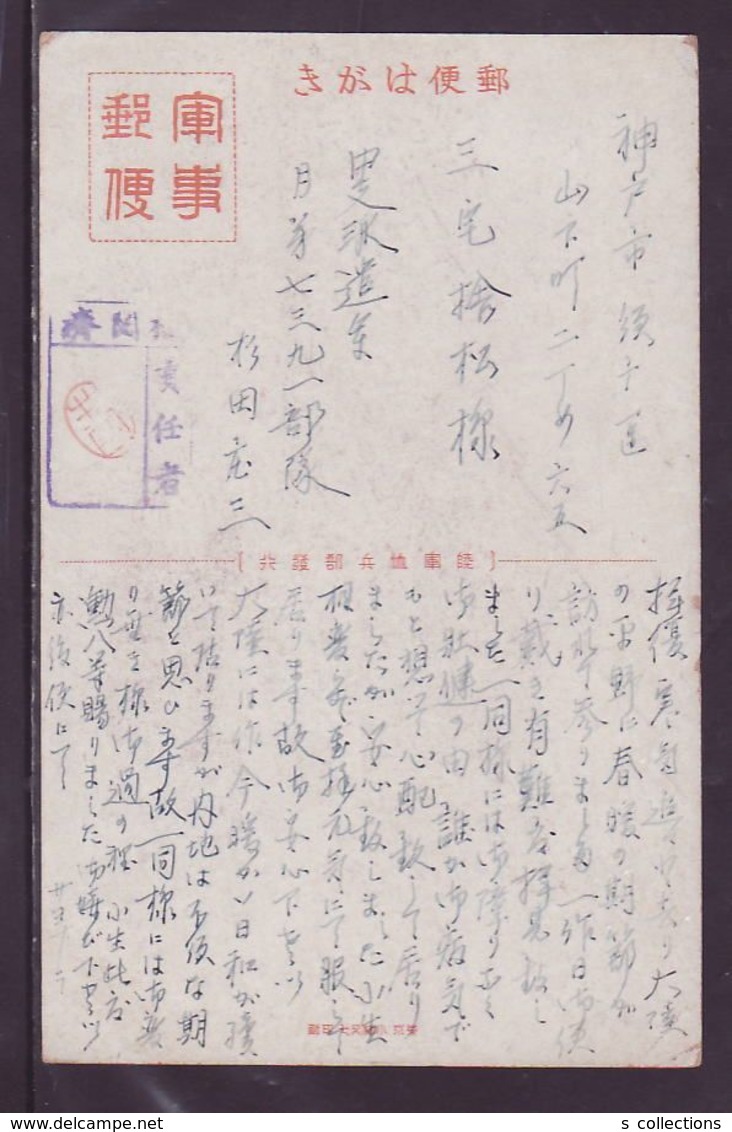 郵便はがき
軍事
郵便
神戸市須
山下町二丁め六五
三宅捨松様
中支派遣
第七三九一部隊
杉田
検閲済
責任者
陸軍恤兵部發行
拝復 寒気
の平野に春暖の期節が
訪れて参りました 一昨日御便
り戴き有難く拝見致し
ました 一同様には御障りなく
御壮健の由 誰か御病気で
もと想って心配致して居り
ましたが安心致しました 小生
相変らず至極元気にて服
居ります故御安心下さい
大陸には昨今暖かい日和が續
いて居りますが内地は不順な期
節と思ひます故一同様には御変
り無き様御過の程 小生此度
勲八等賜りました 御喜び下さい
亦後便にて
サヨナラ
s collections